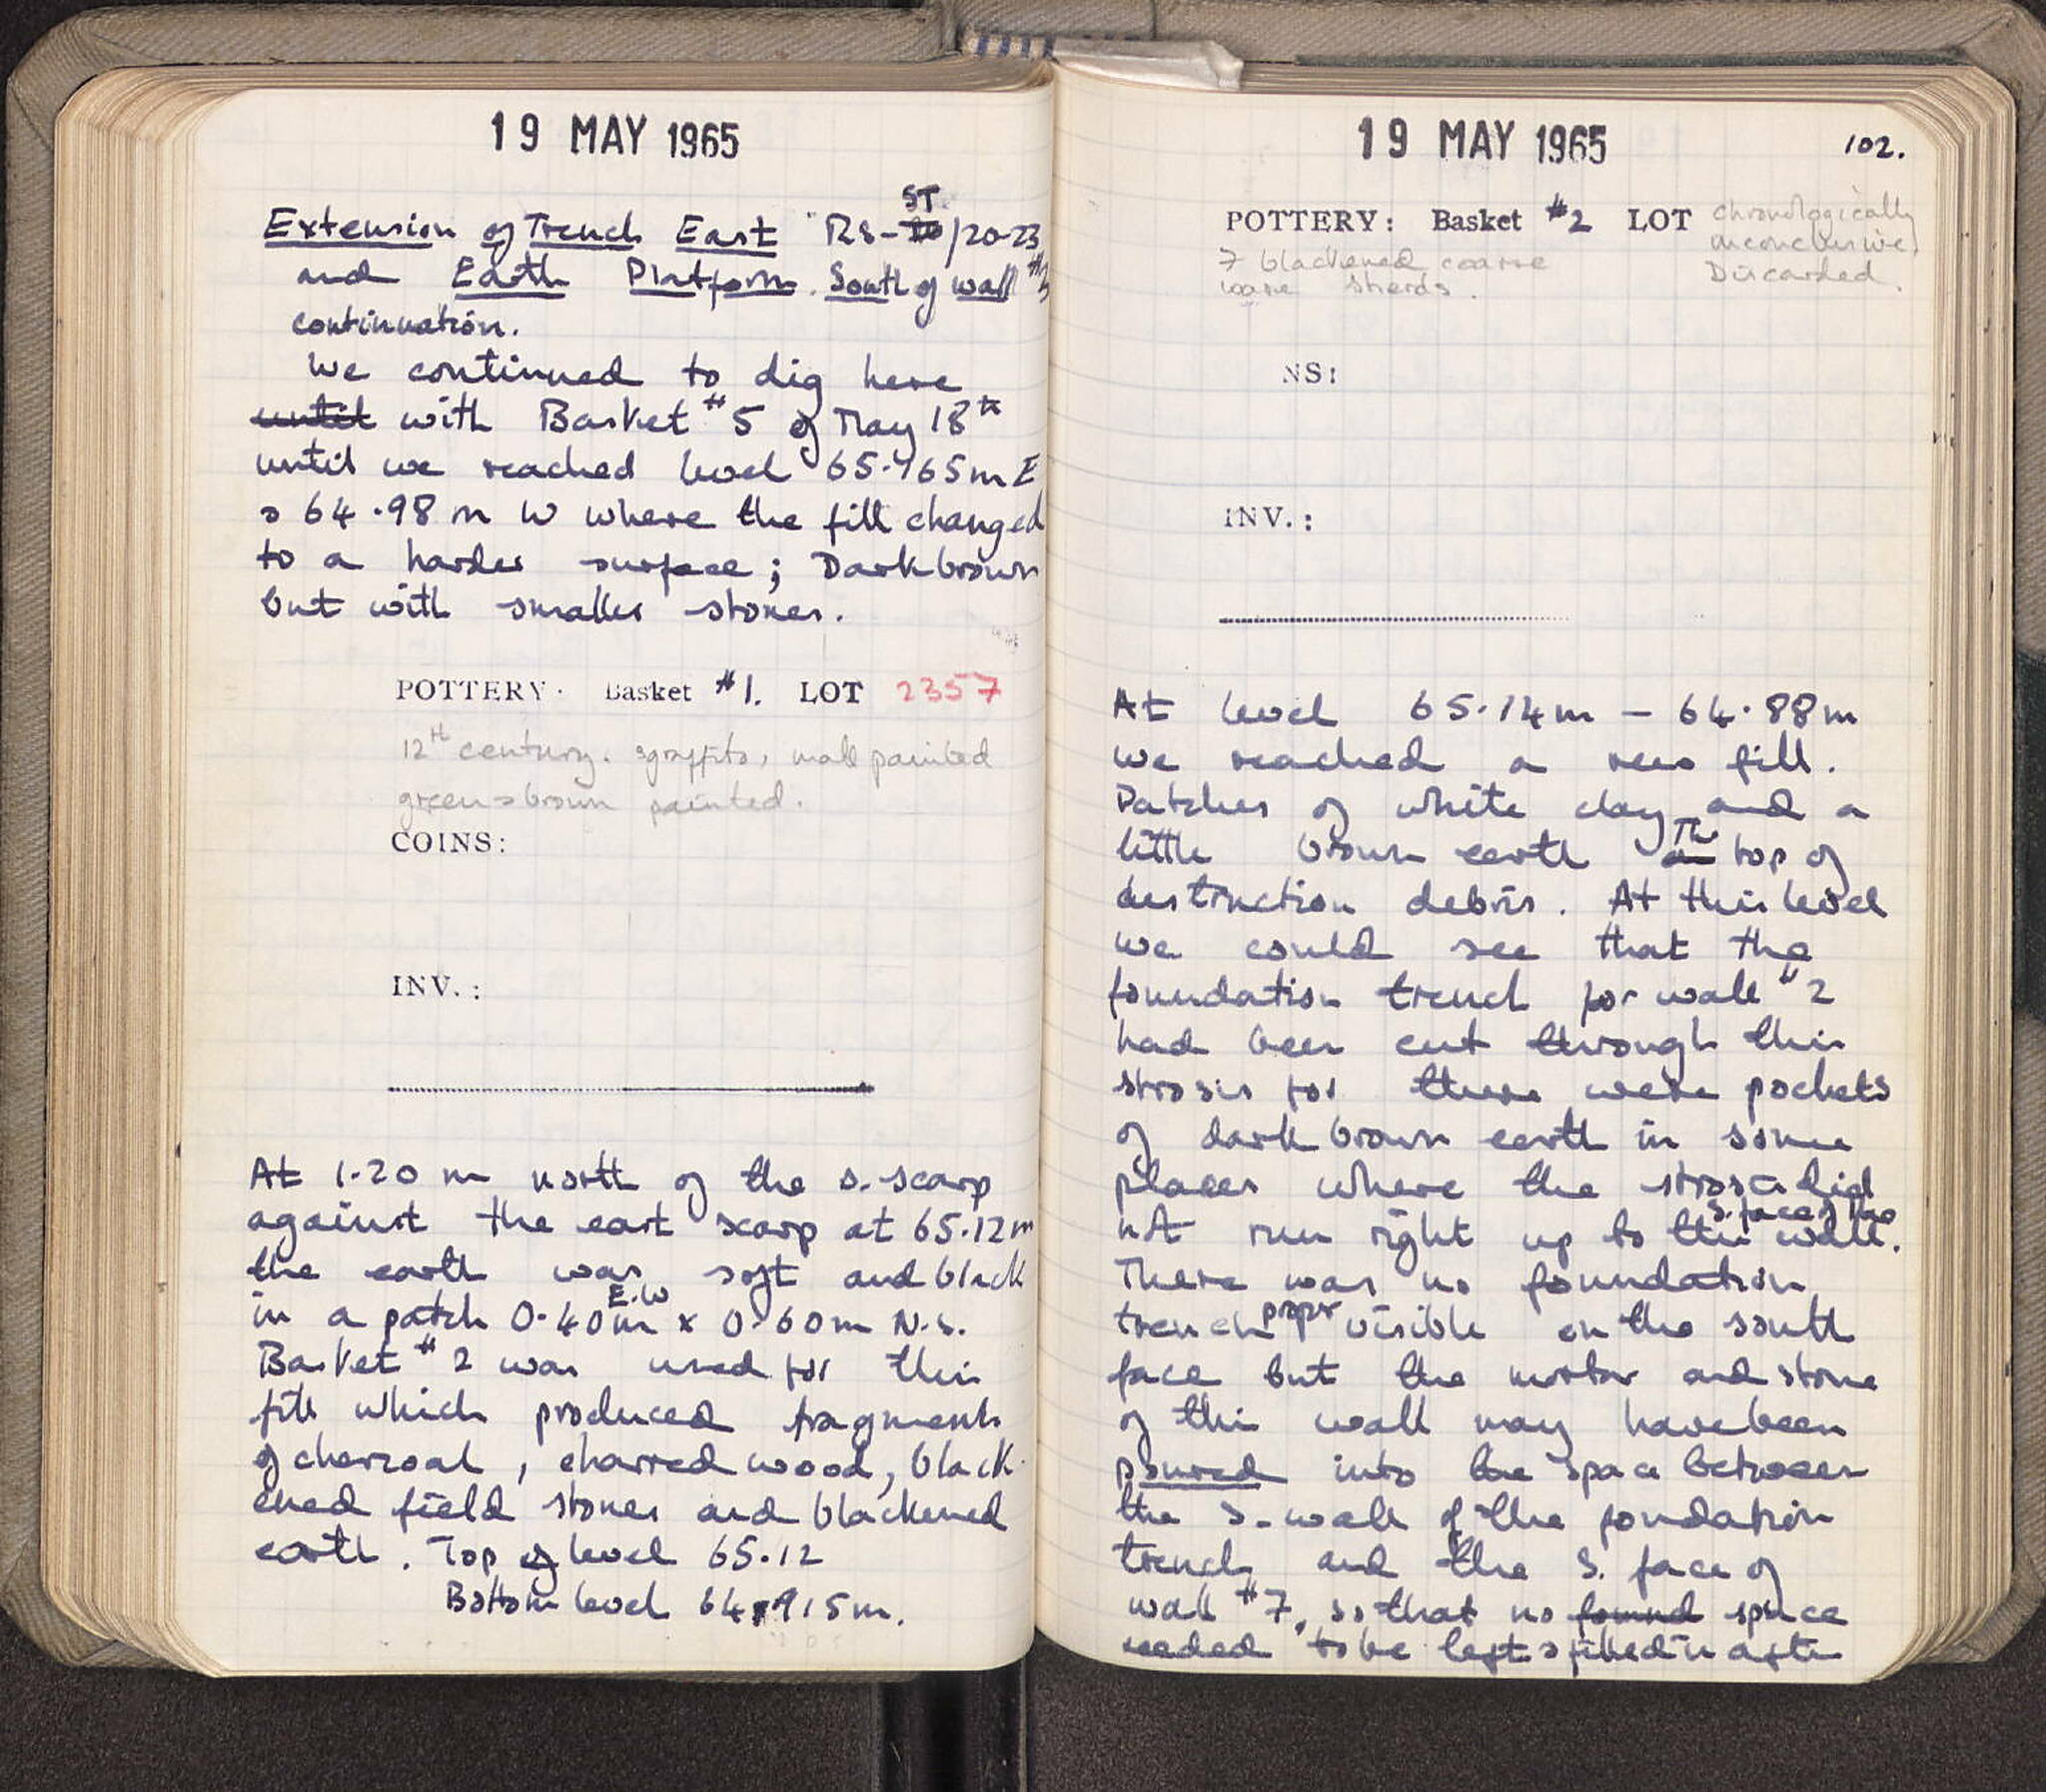 19 MAY 1965
Extension of Trench East RS-ST/20-23
and Earth Platform. South of wall #
continuation.
We continued to dig here
until with Basket #5 of May 18th
until we reached level 65.165m E
64.98m W where the fill changed
to a harder surface; Dark brown
but with smaller stones.
POTTERY. Basket #1. LOT 2357
12th century. sgraffito, matt painted
green brown painted.
COINS:
INV.:
At 1.20 m north of the S. scarp
against the east scarp at 65.12m
the earth was soft and black
in a patch 0.40m E.W x 0.60m N.S.
Basket #2 was used for this
fill which produced fragments
of charcoal, charred wood, black-
ened field stones and blackened
earth. Top of level 65.12
Bottom level 64.915m.
19 MAY 1965
102.
POTTERY: Basket #2 LOT chronologically
inconclusive.
Discarded.
7 blackened coarse
ware sherds.
NS:
INV.:
At level 65.14m - 64.88m
we reached a new fill.
Patches of white clay and a
little brown earth The top of
destruction debris. At this level
we could see that the
foundation trench for wall #2
had been cut through this
strosis for there were pockets
of dark brown earth in some
places where the strosis did
not run right up to the S. face of the wall.
There was no foundation
trench proper visible on the south
face but the mortar and stone
of this wall may have been
poured into the space between
the S. wall of the foundation
trench and the S. face of
wall #7, so that no found space
needed to be left & filled in after